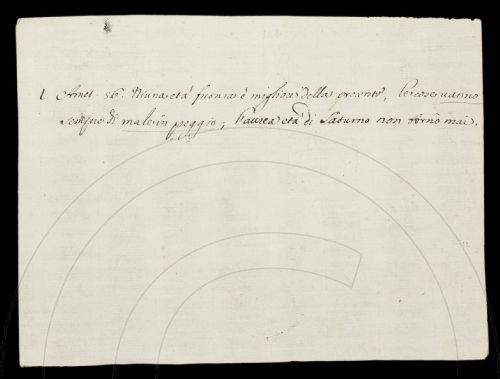 1 Amet. 56. Niuna età futura è miglior della presente, le cose vanno
sempre di male in peggio; l'aurea età di Saturno non tornò mai.